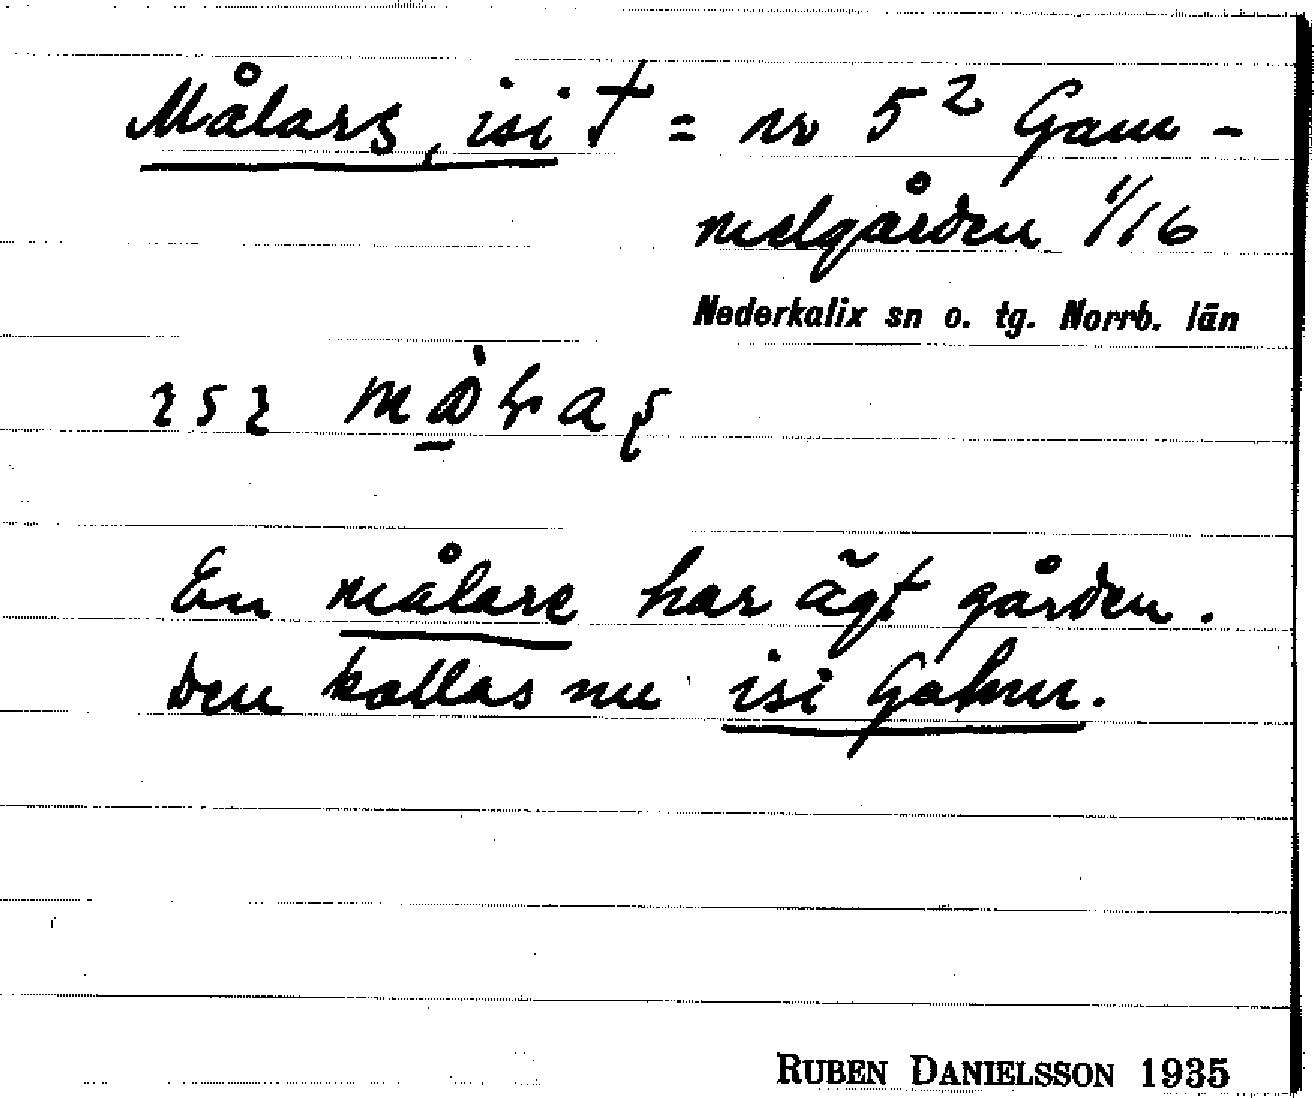 Målars, isi † = nr 5² Gam-
melgården 1/16
Nederkalix sn o. tg. Norrb. län
En målare har ägt gården.
Den kallas nu isi Gahm.
RUBEN DANIELSSON 1935